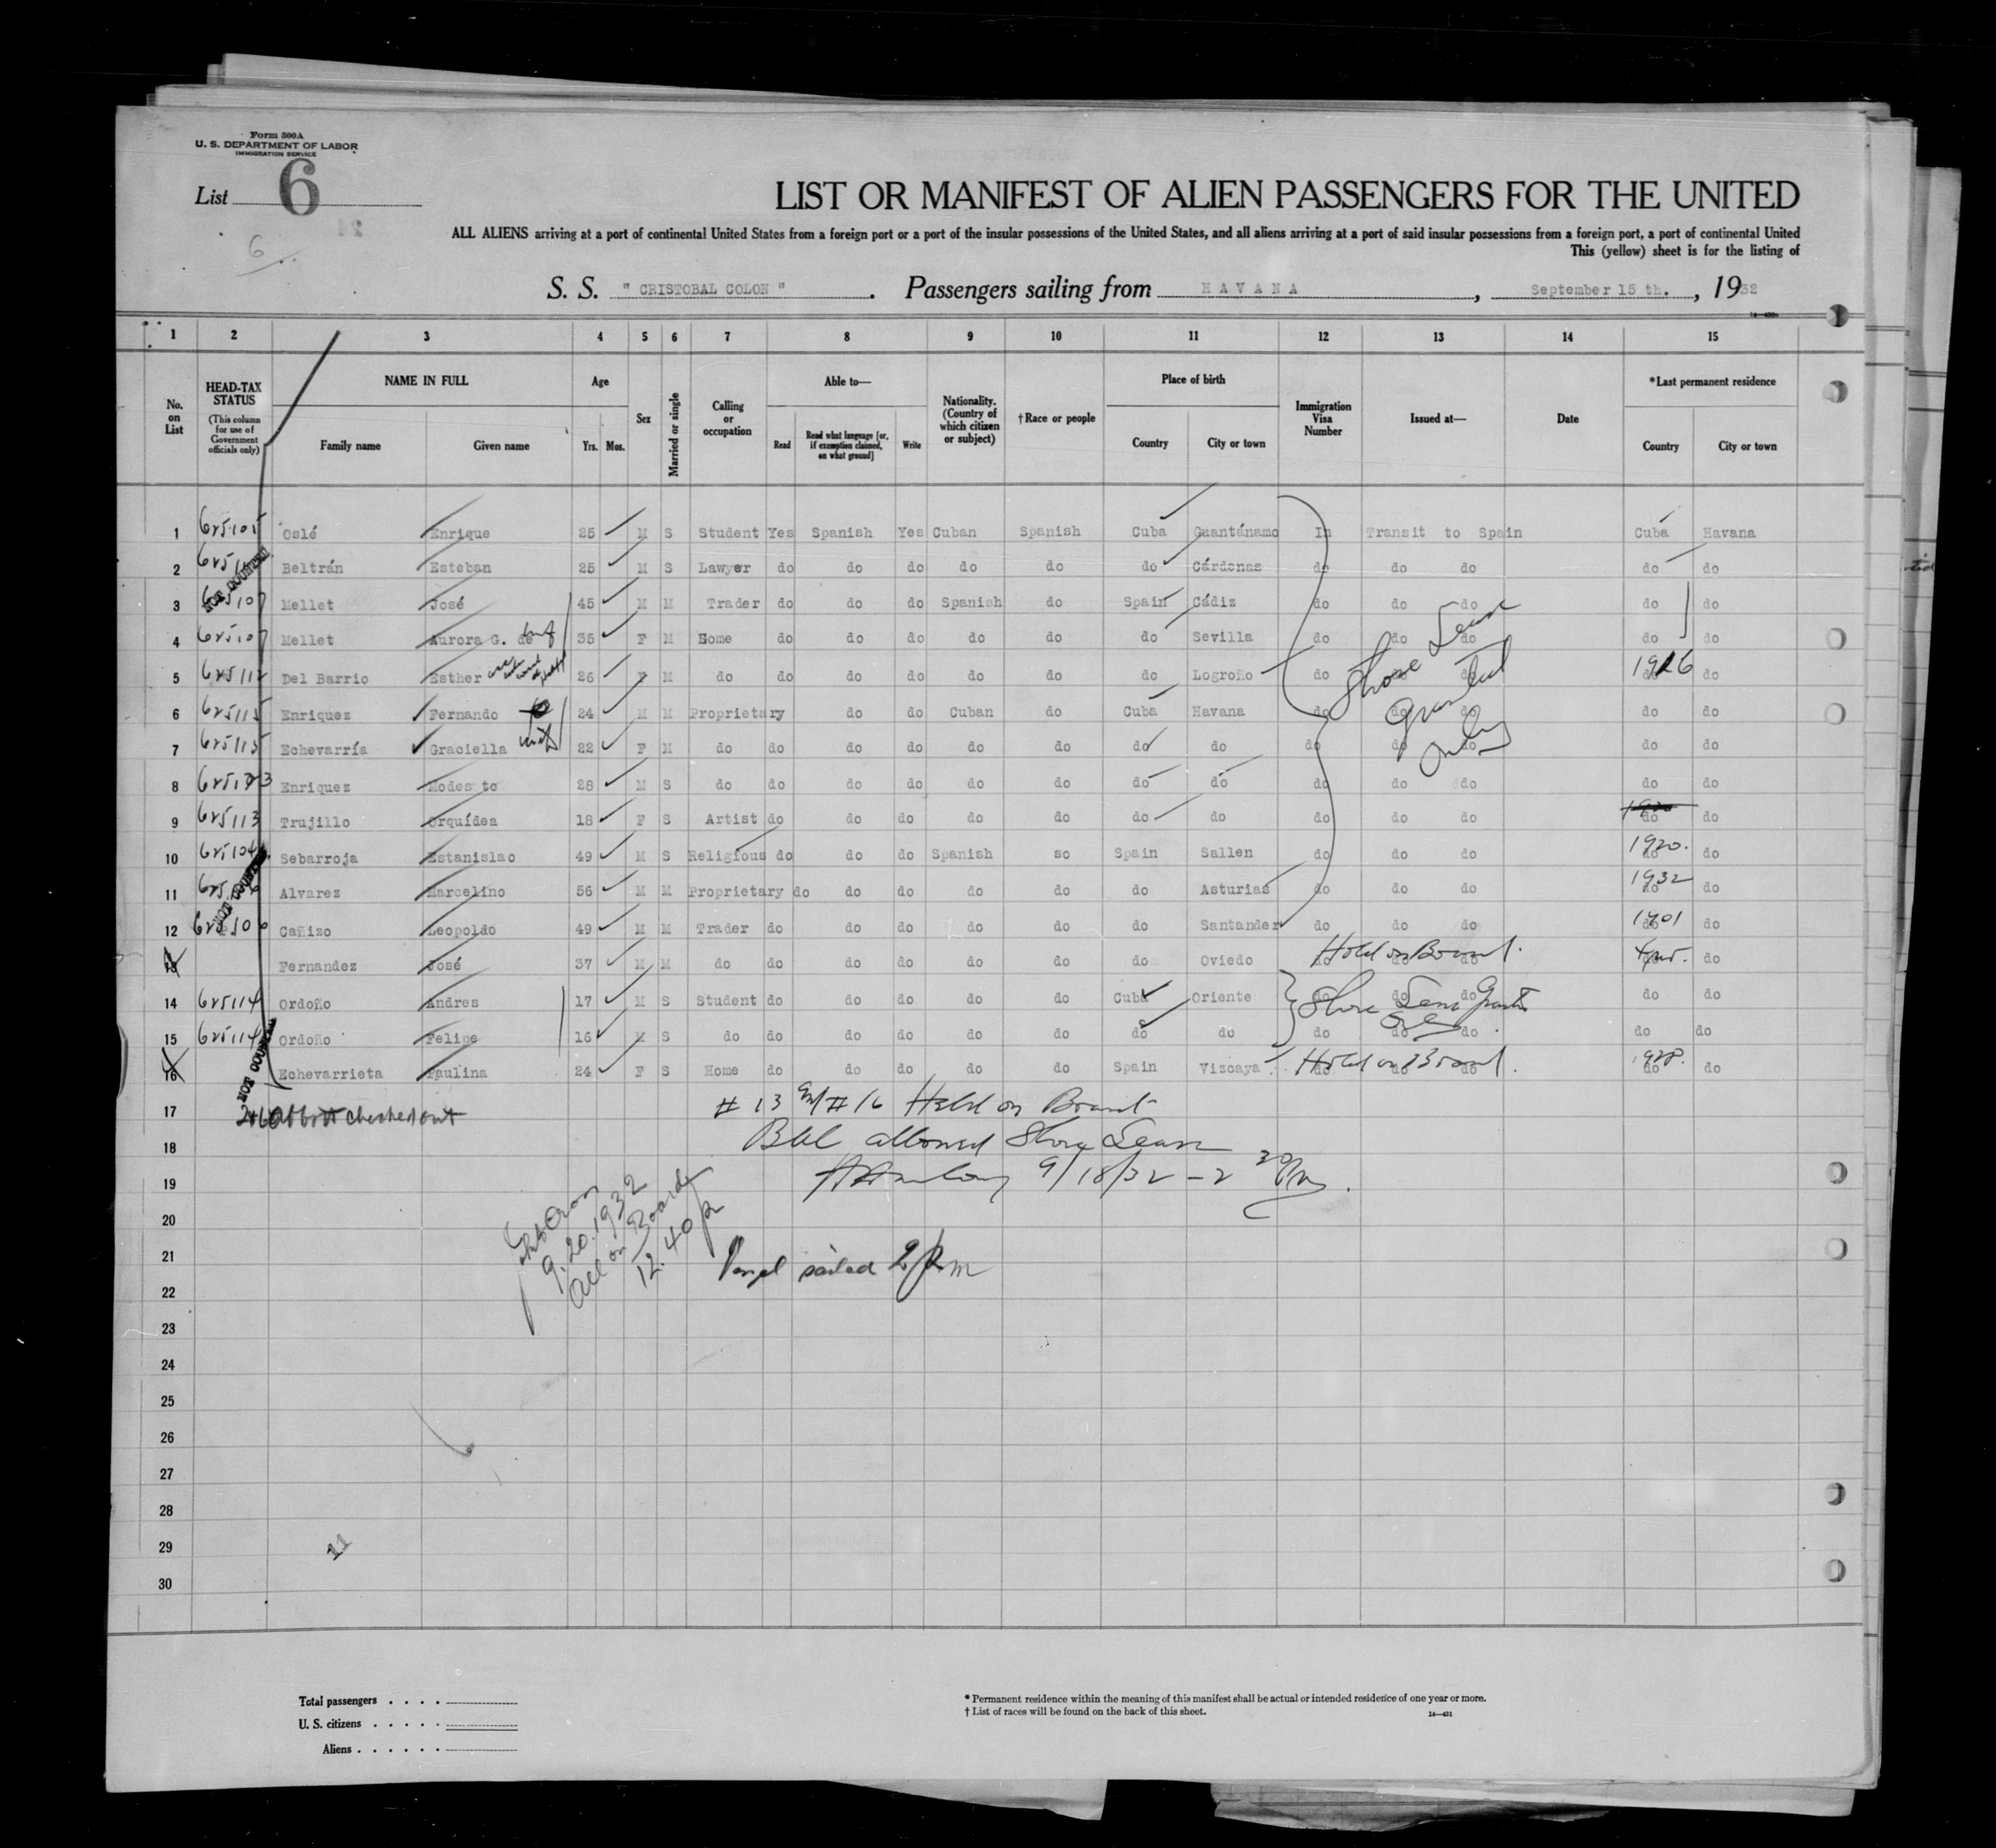 Form 500A
U. S. DEPARTMENT OF LABOR
IMMIGRATION SERVICE
List 6
6
LIST OR MANIFEST OF ALIEN PASSENGERS FOR THE UNITED
ALL ALIENS arriving at a port of continental United States from a foreign port or a port of the insular possessions of the United States, and all aliens arriving at a port of said insular possessions from a foreign port, a port of continental United
This (yellow) sheet is for the listing of
S. S. " CRISTOBAL COLON " . Passengers sailing from H A V A N A , September 15 th. , 1932
1 2 3 4 5 6 7 8 9 10 11 12 13 14 15
No. on List
HEAD-TAX STATUS (This column for use of Government officials only)
NAME IN FULL Family name Given name
Age Yrs. Mos.
Sex
Married or single
Calling or occupation
Able to— Read Read what language [or, if exemption claimed, on what ground] Write
Nationality. (Country of which citizen or subject)
†Race or people
Place of birth Country City or town
Immigration Visa Number
Issued at—
Date
*Last permanent residence Country City or town
1 625105 Oslé Enrique 25 M S Student Yes Spanish Yes Cuban Spanish Cuba Guantánamo In Transit to Spain Cuba Havana
2 Beltrán Esteban 25 M S Lawyer do do do do do do Cárdenas do do do do do
3 Mellet José 45 M M Trader do do do Spanish do Spain Cádiz do do do do do
4 625107 Mellet Aurora G. de wf 35 F M Home do do do do do do Sevilla do do do do do
5 625112 Del Barrio Esther 26 F M do do do do do do do Logroño do do do 1926 do do
6 625115 Enriquez Fernando 24 M M Proprietary do do Cuban do Cuba Havana do do do do do
7 625115 Echevarría Graciella wife 22 F M do do do do do do do do do do do do do
8 625123 Enriquez Modesto 28 M S do do do do do do do do do do do do do
9 625113 Trujillo Orquídea 18 F S Artist do do do do do do do do do do do do
10 625104 Sebarroja Estanislao 49 M S Religious do do do Spanish so Spain Sallen do do do 1920. do do
11 Alvarez Marcelino 56 M M Proprietary do do do do do do Asturias do do do 1932 do do
12 Cañizo Leopoldo 49 M M Trader do do do do do do Santander do do do 1901 do do
13 Fernandez José 37 M M do do do do do do do Oviedo do do do Hold on Board. do
14 625114 Ordoño Andres 17 M S Student do do do do do Cuba Oriente do do do do do
15 625114 Ordoño Felipe 16 M S do do do do do do do do do do do do do
16 Echevarrieta Paulina 24 F S Home do do do do do Spain Vizcaya do do do Hold on Board. 1928. do do
Shore Leave Granted Only
Shore Leave Granted Only
NOT COUNTED
NOT COUNTED
NOT COUNTED
17 Abbott checked out
# 13 and # 16 Held on Board
18 Bal allowed Shore Leave
19 9/18/32 - 2 30 Pm.
20
9.20.1932
All on Board
12.40 p
21 Vessel sailed 2 pm
22
23
24
25
26
27
28
29
11
30
Total passengers . . . .
U. S. citizens . . . . .
Aliens . . . . . .
* Permanent residence within the meaning of this manifest shall be actual or intended residence of one year or more.
† List of races will be found on the back of this sheet.
14—431